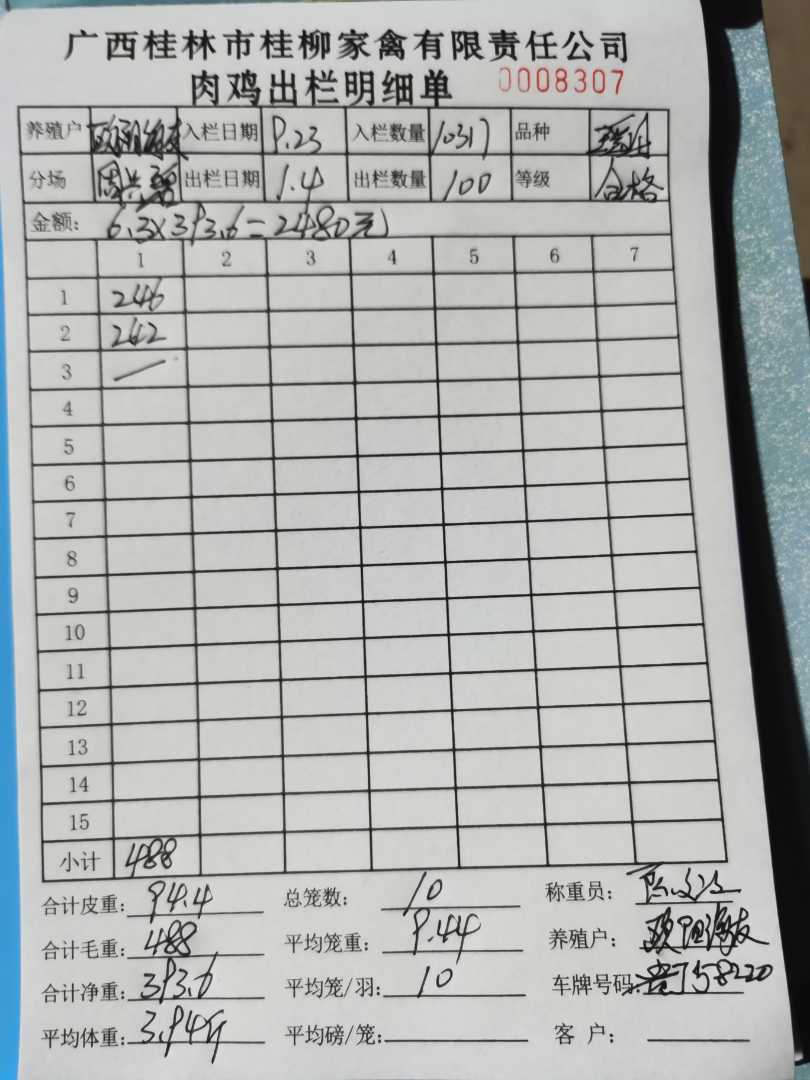 广西桂林市桂柳家禽有限责任公司
肉鸡出栏明细单 0008307
养殖户 入栏日期 9.23 入栏数量 10317 品种
分场 出栏日期 1.4 出栏数量 100 等级 合格
金额: 6.3×393.6=2480元
1 2 3 4 5 6 7
1 246
2 242
3
4
5
6
7
8
9
10
11
12
13
14
15
小计 488
合计皮重: 94.4 总笼数: 10 称重员:
合计毛重: 488 平均笼重: 9.44 养殖户:
合计净重: 393.6 平均笼/羽: 10 车牌号码: 58220
平均体重: 3.94斤 平均磅/笼: 客户: